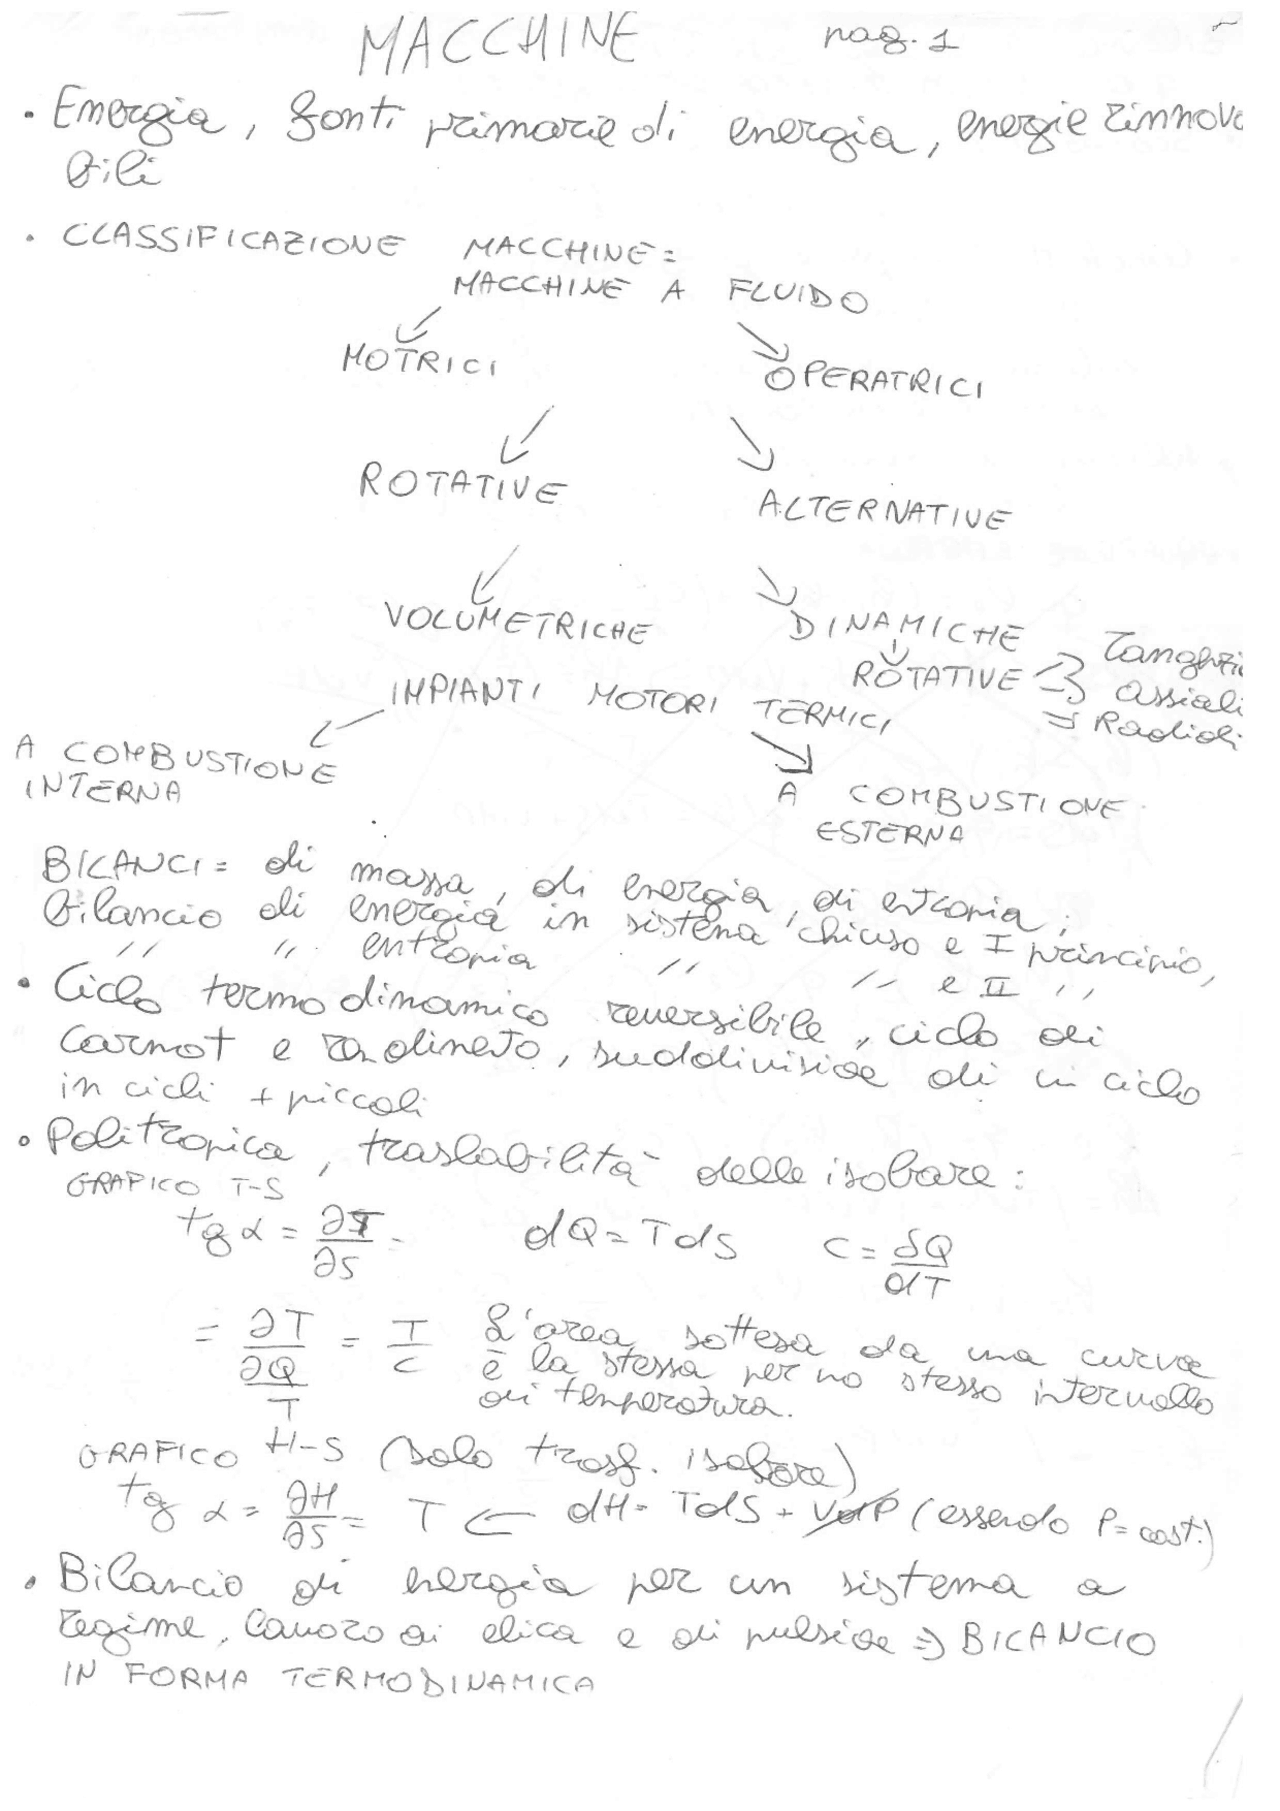 MACCHINE pag. 1
• Energia, fonti primarie di energia, energie rinnova
bili
• CLASSIFICAZIONE MACCHINE =
MACCHINE A FLUIDO
MOTRICI OPERATRICI
ROTATIVE ALTERNATIVE
VOLUMETRICHE DINAMICHE
ROTATIVE => Tangenzi
=> assiali
=> Radiali
IMPIANTI MOTORI TERMICI
A COMBUSTIONE
INTERNA
A COMBUSTIONE
ESTERNA
BILANCI = di massa, di energia, di entropia;
bilancio di energia in sistema chiuso e I principio,
" " entropia " " e II "
• Ciclo termodinamico reversibile, ciclo di
Carnot e rendimento, suddivisione di un ciclo
in cicli + piccoli
• Politropica, traslabilità delle isobare:
GRAFICO T-S
tg α = ∂T/∂S = dQ = TdS c = δQ/dT
= ∂T/(∂Q/T) = T/c L'area sottesa da una curva
è la stessa per uno stesso intervallo
di temperatura.
GRAFICO H-S (solo trasf. isobare)
tg α = ∂H/∂S = T ← dH = TdS + VdP (essendo P = cost.)
• Bilancio di energia per un sistema a
regime. Lavoro di elica e di pulsione => BILANCIO
IN FORMA TERMODINAMICA